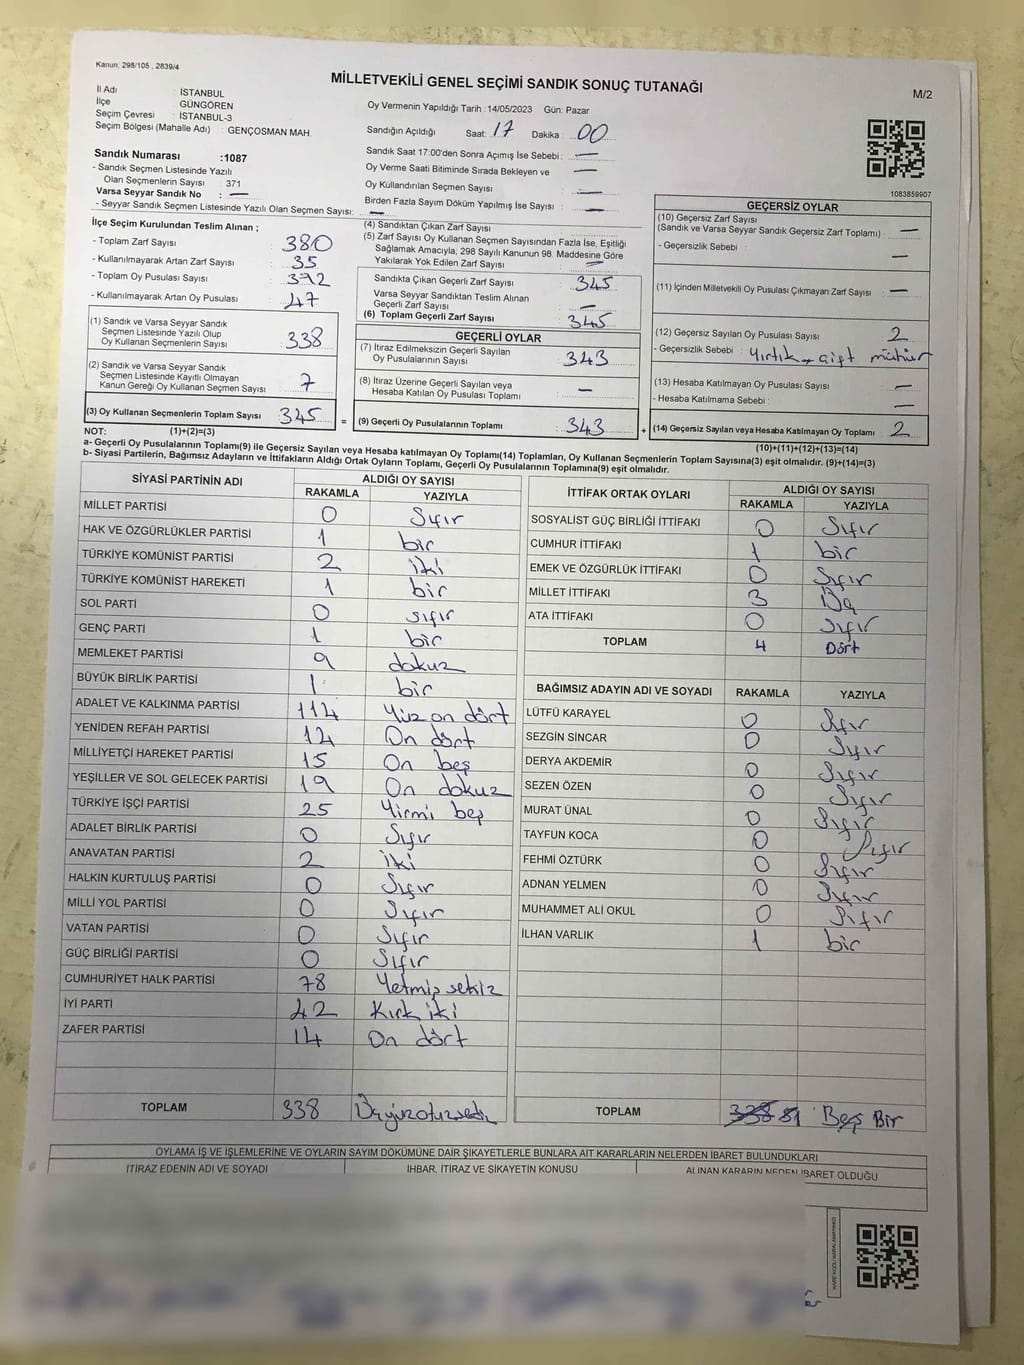 Kanun, 298/105 , 2839/4
MİLLETVEKİLİ GENEL SEÇİMİ SANDIK SONUÇ TUTANAĞI
M/2
İl Adı : İSTANBUL
İlçe GÜNGÖREN
Seçim Çevresi : İSTANBUL-3
Seçim Bölgesi (Mahalle Adı) : GENÇOSMAN MAH.
Oy Vermenin Yapıldığı Tarih : 14/05/2023 Gün: Pazar
Sandığın Açıldığı Saat: 17 Dakika : 00
Sandık Saat 17:00'den Sonra Açımış İse Sebebi : —
Oy Verme Saati Bitiminde Sırada Bekleyen ve —
Oy Kullandırılan Seçmen Sayısı —
Birden Fazla Sayım Döküm Yapılmış İse Sayısı —
Sandık Numarası :1087
- Sandık Seçmen Listesinde Yazılı
Olan Seçmenlerin Sayısı 371
Varsa Seyyar Sandık No : —
- Seyyar Sandık Seçmen Listesinde Yazılı Olan Seçmen Sayısı: —
1083859907
İlçe Seçim Kurulundan Teslim Alınan ;
- Toplam Zarf Sayısı 380
- Kullanılmayarak Artan Zarf Sayısı 35
- Toplam Oy Pusulası Sayısı 392
- Kullanılmayarak Artan Oy Pusulası 47
(1) Sandık ve Varsa Seyyar Sandık
Seçmen Listesinde Yazılı Olup
Oy Kullanan Seçmenlerin Sayısı 338
(2) Sandık ve Varsa Seyyar Sandık
Seçmen Listesinde Kayıtlı Olmayan
Kanun Gereği Oy Kullanan Seçmen Sayısı 7
(3) Oy Kullanan Seçmenlerin Toplam Sayısı 345 =
(4) Sandıktan Çıkan Zarf Sayısı
(5) Zarf Sayısı Oy Kullanan Seçmen Sayısından Fazla İse, Eşitliği
Sağlamak Amacıyla; 298 Sayılı Kanunun 98. Maddesine Göre
Yakılarak Yok Edilen Zarf Sayısı —
Sandıkta Çıkan Geçerli Zarf Sayısı 345
Varsa Seyyar Sandıktan Teslim Alınan
Geçerli Zarf Sayısı —
(6) Toplam Geçerli Zarf Sayısı 345
GEÇERLİ OYLAR
(7) İtiraz Edilmeksizin Geçerli Sayılan
Oy Pusulalarının Sayısı 343
(8) İtiraz Üzerine Geçerli Sayılan veya
Hesaba Katılan Oy Pusulası Toplamı —
(9) Geçerli Oy Pusulalarının Toplamı 343 +
GEÇERSİZ OYLAR
(10) Geçersiz Zarf Sayısı
(Sandık ve Varsa Seyyar Sandık Geçersiz Zarf Toplamı) : —
- Geçersizlik Sebebi : —
(11) İçinden Milletvekili Oy Pusulası Çıkmayan Zarf Sayısı : —
(12) Geçersiz Sayılan Oy Pusulası Sayısı 2
- Geçersizlik Sebebi : Yırtık + çift mühür
(13) Hesaba Katılmayan Oy Pusulası Sayısı —
- Hesaba Katılmama Sebebi : —
(14) Geçersiz Sayılan veya Hesaba Katılmayan Oy Toplamı 2
NOT: (1)+(2)=(3)
(10)+(11)+(12)+(13)=(14)
a- Geçerli Oy Pusulalarının Toplamı(9) ile Geçersiz Sayılan veya Hesaba katılmayan Oy Toplamı(14) Toplamları, Oy Kullanan Seçmenlerin Toplam Sayısına(3) eşit olmalıdır. (9)+(14)=(3)
b- Siyasi Partilerin, Bağımsız Adayların ve İttifakların Aldığı Ortak Oyların Toplamı, Geçerli Oy Pusulalarının Toplamına(9) eşit olmalıdır.
SİYASİ PARTİNİN ADI ALDIĞI OY SAYISI
RAKAMLA YAZIYLA
MİLLET PARTİSİ 0 Sıfır
HAK VE ÖZGÜRLÜKLER PARTİSİ 1 bir
TÜRKİYE KOMÜNİST PARTİSİ 2 iki
TÜRKİYE KOMÜNİST HAREKETİ 1 bir
SOL PARTİ 0 sıfır
GENÇ PARTİ 1 bir
MEMLEKET PARTİSİ 9 dokuz
BÜYÜK BİRLİK PARTİSİ 1 bir
ADALET VE KALKINMA PARTİSİ 114 Yüz on dört
YENİDEN REFAH PARTİSİ 14 On dört
MİLLİYETÇİ HAREKET PARTİSİ 15 On beş
YEŞİLLER VE SOL GELECEK PARTİSİ 19 On dokuz
TÜRKİYE İŞÇİ PARTİSİ 25 Yirmi beş
ADALET BİRLİK PARTİSİ 0 Sıfır
ANAVATAN PARTİSİ 2 iki
HALKIN KURTULUŞ PARTİSİ 0 Sıfır
MİLLİ YOL PARTİSİ 0 Sıfır
VATAN PARTİSİ 0 Sıfır
GÜÇ BİRLİĞİ PARTİSİ 0 Sıfır
CUMHURİYET HALK PARTİSİ 78 Yetmiş sekiz
İYİ PARTİ 42 Kırk iki
ZAFER PARTİSİ 14 On dört
TOPLAM 338
İTTİFAK ORTAK OYLARI ALDIĞI OY SAYISI
RAKAMLA YAZIYLA
SOSYALİST GÜÇ BİRLİĞİ İTTİFAKI 0 Sıfır
CUMHUR İTTİFAKI 1 bir
EMEK VE ÖZGÜRLÜK İTTİFAKI 0 Sıfır
MİLLET İTTİFAKI 3 Üç
ATA İTTİFAKI 0 Sıfır
TOPLAM 4 Dört
BAĞIMSIZ ADAYIN ADI VE SOYADI RAKAMLA YAZIYLA
LÜTFÜ KARAYEL 0 Sıfır
SEZGİN SİNCAR 0 Sıfır
DERYA AKDEMİR 0 Sıfır
SEZEN ÖZEN 0 Sıfır
MURAT ÜNAL 0 Sıfır
TAYFUN KOCA 0 Sıfır
FEHMİ ÖZTÜRK 0 Sıfır
ADNAN YELMEN 0 Sıfır
MUHAMMET ALİ OKUL 0 Sıfır
İLHAN VARLIK 1 bir
TOPLAM 1 Bir
OYLAMA İŞ VE İŞLEMLERİNE VE OYLARIN SAYIM DÖKÜMÜNE DAİR ŞİKAYETLERLE BUNLARA AİT KARARLARIN NELERDEN İBARET BULUNDUKLARI
İTİRAZ EDENİN ADI VE SOYADI İHBAR, İTİRAZ VE ŞİKAYETİN KONUSU ALINAN KARARIN NEDEN İBARET OLDUĞU